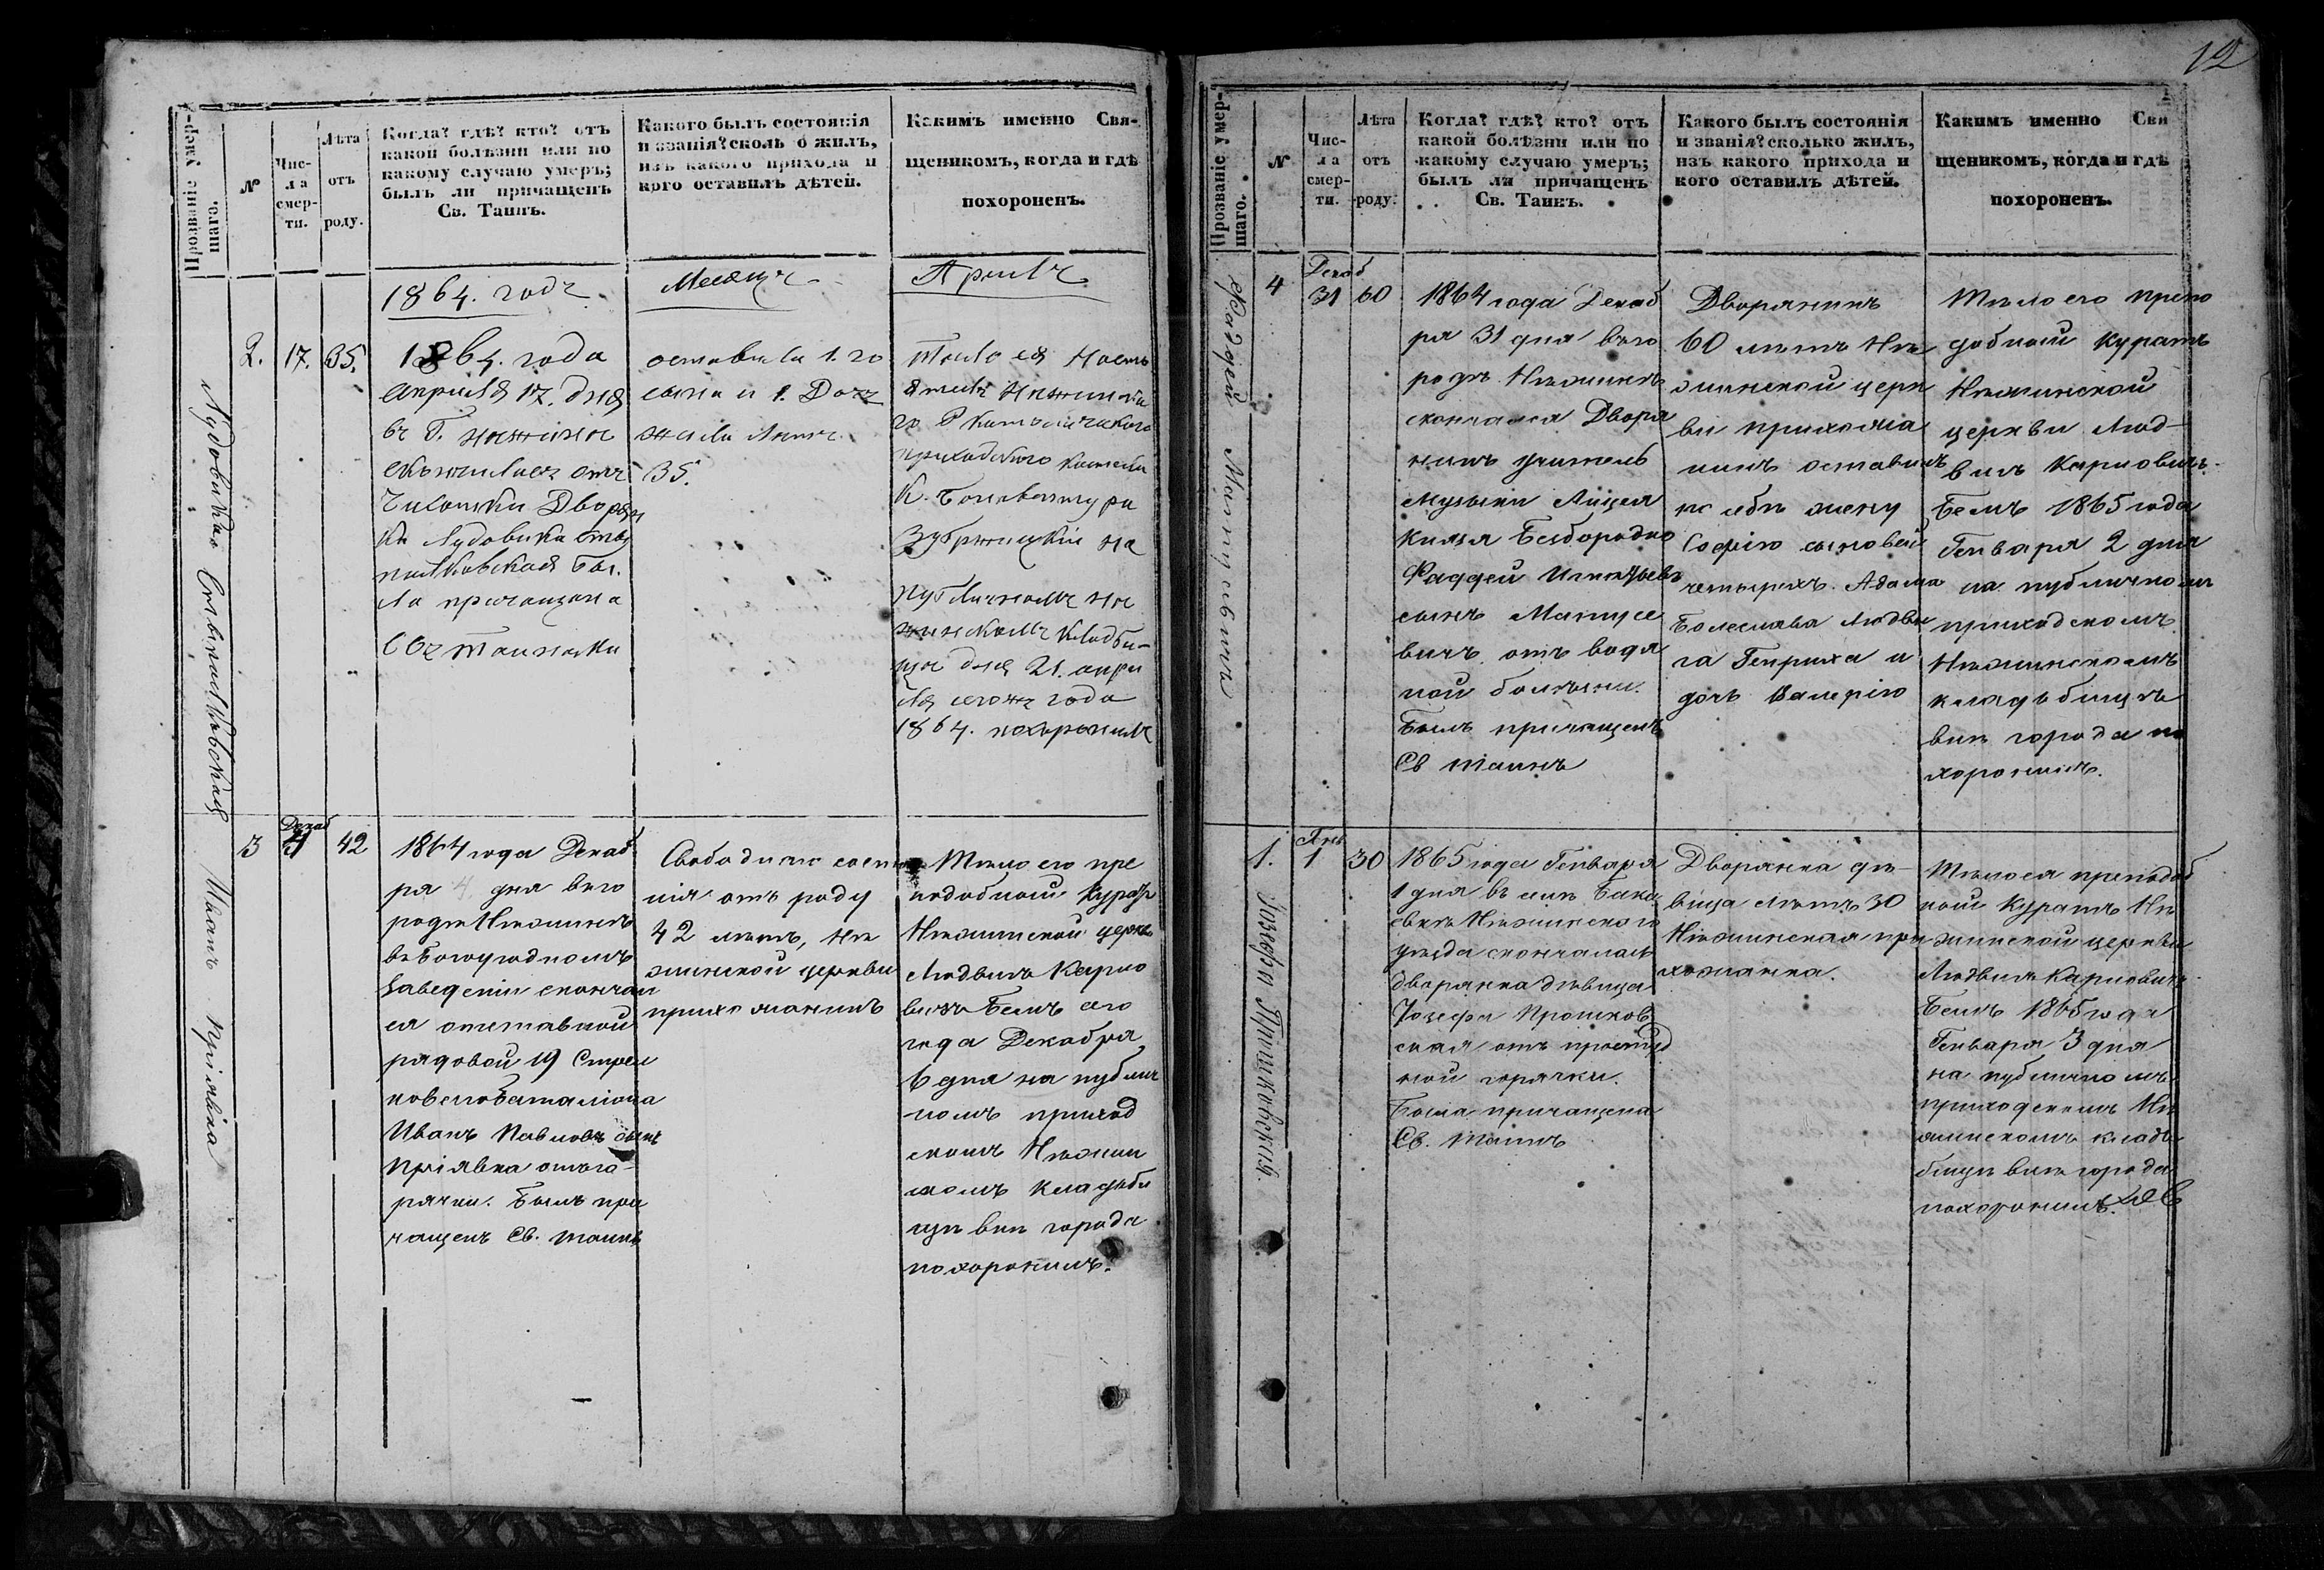 12
Прозваніе умер-
шаго.
№
Чис-
ла
смер-
ти.
Лѣта
отъ
роду.
Когда? гдѣ? кто? отъ
какой болѣзни или по
какому случаю умеръ;
былъ ли причащенъ
Св. Таинъ.
Какого былъ состоянія
и званія? сколько жилъ,
изъ какого прихода и
кого оставилъ дѣтей.
Какимъ именно Свя-
щеникомъ, когда и гдѣ
похороненъ.
1864. годъ
Месяцъ
Априль
Лудовика
2.
17.
35.
1864. года
априля 17. дня
въ Г. Нежине
скончилась отъ
чихотки Дворян
ка Лудовика
Бы
ла причащена
СС таинами
оставила 1. го
сына и 1. Дочь
жила летъ
35.
Тело ея Насто
ятель Нежинска
го Р Католическаго
приходскаго костела
К. Бонавентура
Зубржицкій на
публичномъ Не
жинскомъ кладби-
ще дня 21. апри
ля сегожъ года
1864. похоронилъ
Иванъ Пріявка
3
Декаб
4
42
1864 года Декаб
ря 4 дня въ го
родѣ Нѣжинѣ
въ Богоугодномъ
Заведеніи скончал
ся отставной
рядовой 19 Стрел
коваго баталіона
Иванъ Павловъ сынъ
Пріявка отъ го-
рячки. Былъ при
чащенъ Св. Таинъ
Свободнаго состоя
нія отъ роду
42 лѣтъ, Нѣ
жинской церкви
прихожанинъ
Тѣло его пре
подобной Куратъ
Нѣжинской церкви
Людвигъ Карло
вичъ Бемъ сего
года Декабря
6 дня на публич
номъ приход
скомъ Нѣжин
скомъ кладби
щѣ внѣ города
похоронилъ.
Прозваніе умер-
шаго.
№
Чис-
ла
смер-
ти.
Лѣта
отъ
роду.
Когда? гдѣ? кто? отъ
какой болѣзни или по
какому случаю умеръ;
былъ ли причащенъ
Св. Таинъ.
Какого былъ состоянія
и званія? сколько жилъ,
изъ какого прихода и
кого оставилъ дѣтей.
Какимъ именно Свя
щеникомъ, когда и гдѣ
похороненъ.
Фаддей Матусевичъ
4
Декаб
31
60
1864 года Декаб
ря 31 дня въ го
родѣ Нѣжинѣ
скончался Дворя
нинъ учитель
музыки Лицея
Князя Безбородко
Фаддей Игнатьевъ
сынъ Матусе
вичъ отъ водя
ной болѣзни.
Былъ причащенъ
Св Таинъ
Дворянинъ
60 лѣтъ Нѣ
жинской церк
ви прихожа
нинъ оставилъ
по себѣ жену
Софію сыновей
четырехъ. Адама
Болеслава Людви
га Генриха и
дочь Валерію
Тѣло его препо
добной Куратъ
Нѣжинской
церкви Люд-
вигъ Карловичъ
Бемъ 1865 года
Генваря 2 дня
на публичномъ
приходскомъ
Нѣжинскомъ
кладъбищѣ
внѣ города по
хоронилъ.
1.
Генв
1
30
1865 года Генваря
1 дня въ
Нѣжинскаго
уѣзда скончалась
дворянка дѣвица
Іозефа
отъ простуд
ной горячки.
Была причащена
Св. Таинъ
Дворянка дѣ-
вица лѣтъ 30
Нѣжинская при
хожанка.
Тѣло ея преподоб
ной Куратъ Нѣ
жинской церкви
Людвигъ Карловичъ
Бемъ 1865 года
Генваря 3 дня
на публичномъ
приходскомъ Нѣ
жинскомъ кладъ
бищѣ внѣ города
похоронилъ.